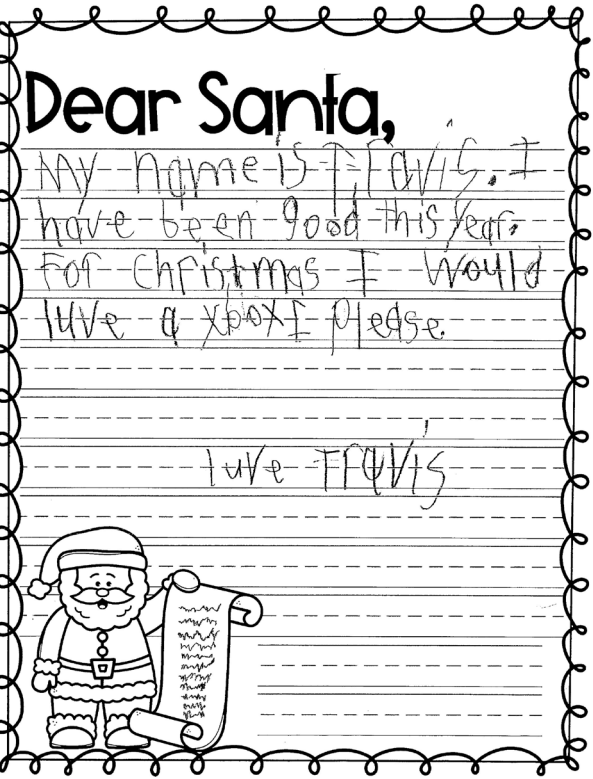 Dear Santa,
My name is Travis. I
have been good this year.
For Christmas I would
luve a xbox1 please.
luve Travis